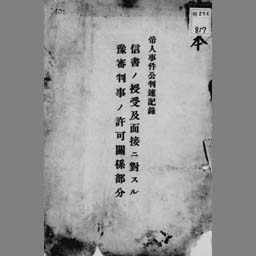 帝人事件公判速記錄
信書ノ授受及面接ニ對スル
豫審判事ノ許可關係部分
817
本